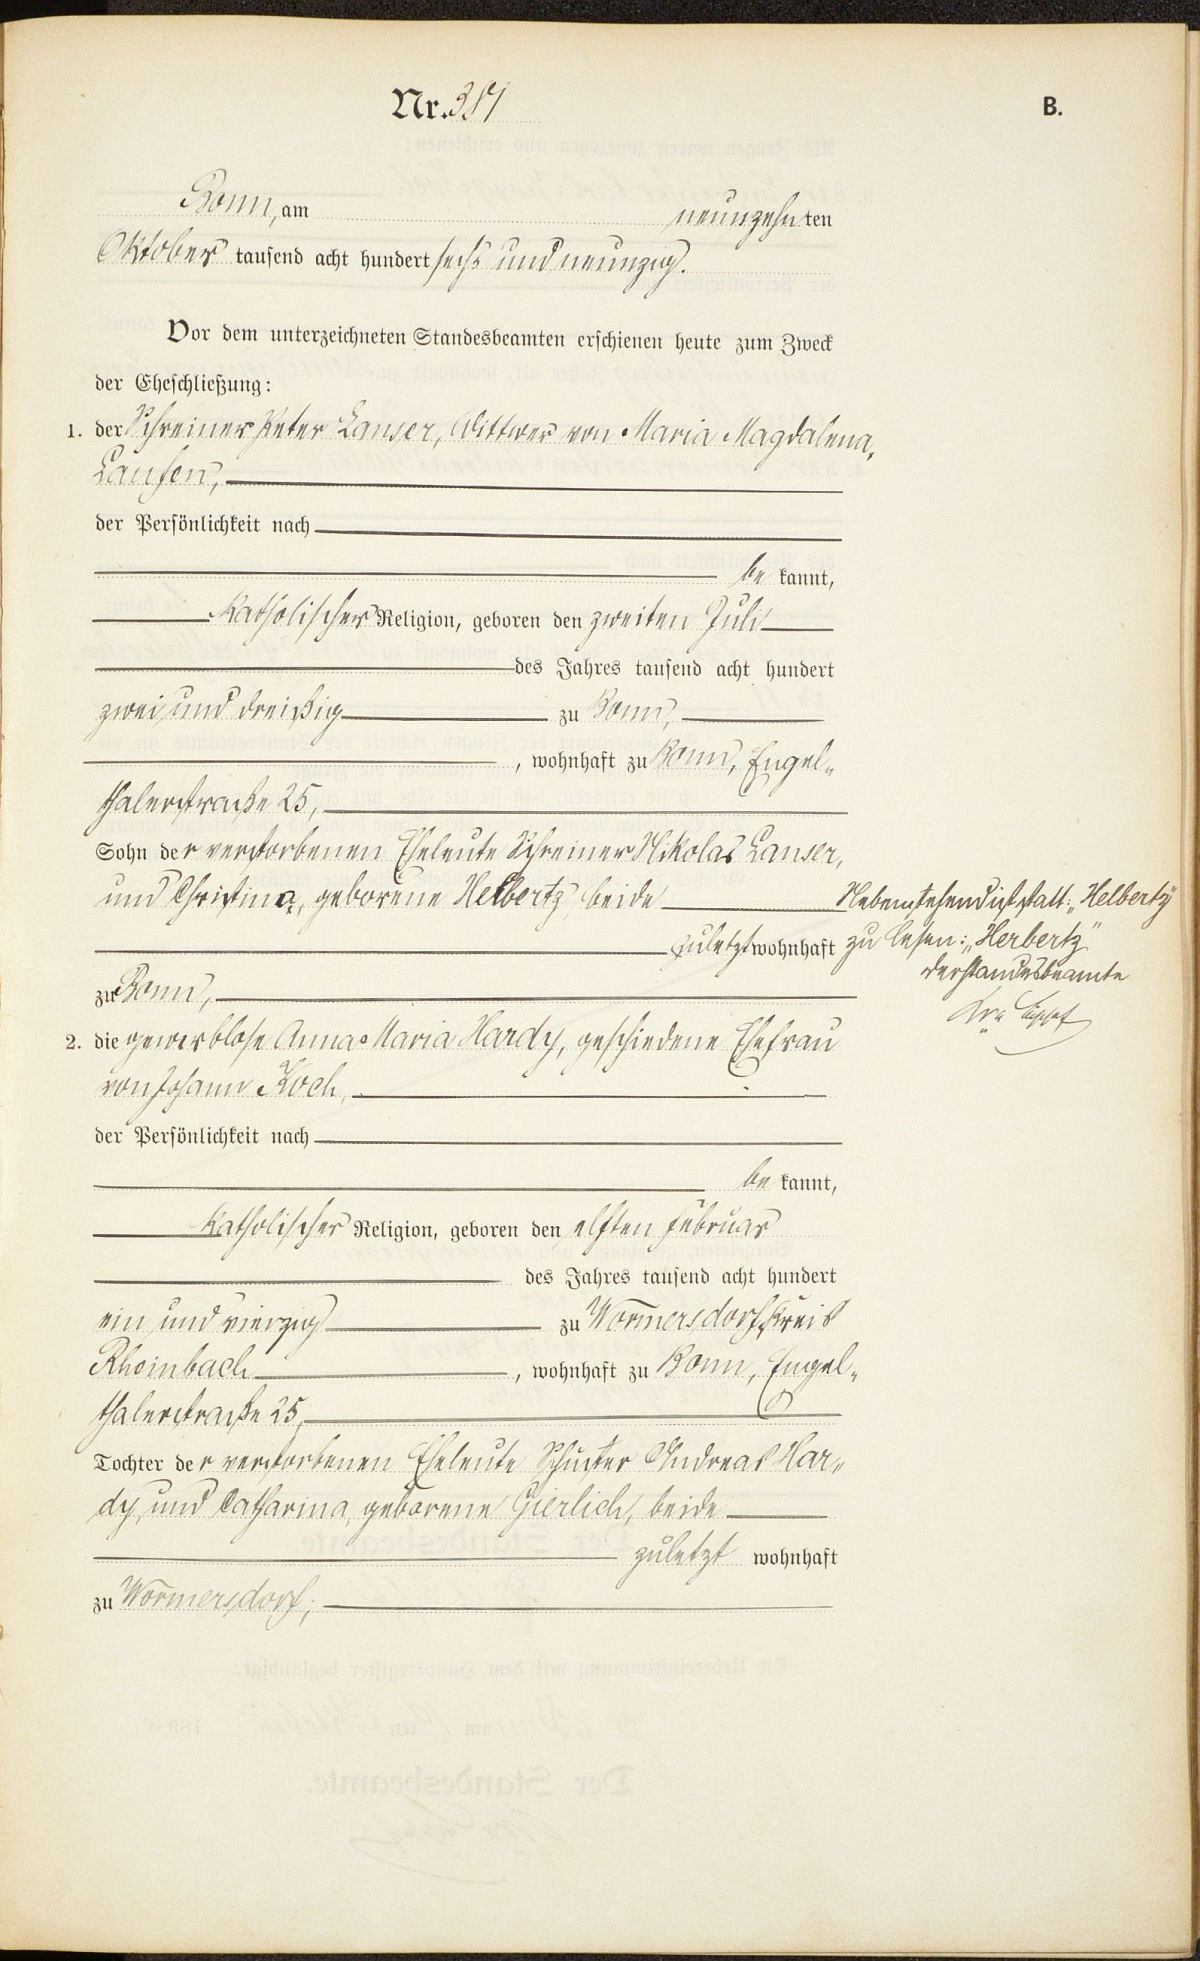 Nr. 387
B.
Bonn, am neunzehnten
Oktober tausend acht hundert sechs und neunzig.
Vor dem unterzeichneten Standesbeamten erschienen heute zum Zweck
der Eheschließung:
1. der Schreiner Peter Lanser, Wittwer von Maria Magdalena,
Laufen,
der Persönlichkeit nach
be kannt,
katholischer Religion, geboren den zweiten Juli
des Jahres tausend acht hundert
zwei und dreißig zu Bonn,
, wohnhaft zu Bonn, Engel„
thalerstraße 25,
Sohn der verstorbenen Eheleute Schreiner Nikolas Lanser,
und Christina, geborene Helbertz, beide
zuletzt wohnhaft
zu Bonn,
Nebenstehend ist statt: „Helbertz"
zu lesen: „Herbertz"
Der Standesbeamte
2. die gewerblose Anna Maria Hardy, geschiedene Ehefrau
von Johann Koch,
der Persönlichkeit nach
be kannt,
katholischer Religion, geboren den elften Februar
des Jahres tausend acht hundert
ein und vierzig zu Wormersdorf, Kreis
Rheinbach, wohnhaft zu Bonn, Engel„
thalerstraße 25,
Tochter der verstorbenen Eheleute Schuster Andreas Har„
dy, und Catharina, geborene Gierlich, beide
zuletzt wohnhaft
zu Wormersdorf,